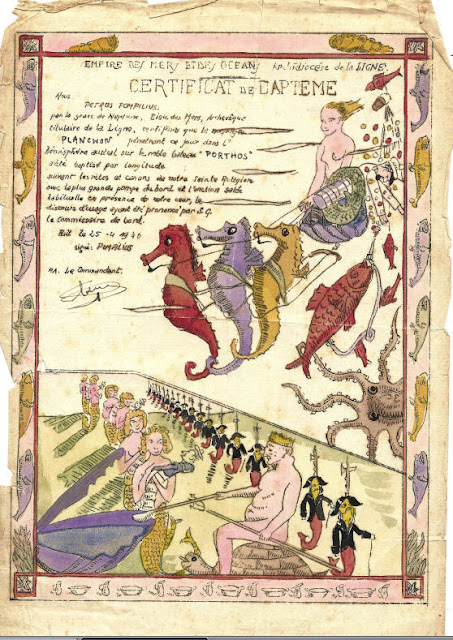 EMPIRE DES MERS ET DES OCEANS archidiocèse de la LIGNE.
CERTIFICAT DE BAPTEME
Nous
POMPILIUS.
par la grace de Neptune, Dieu des Mers, Archevêque
titulaire de la Ligne, certifions que le
PLANCHON pénétrant ce jour dans l'
hémisphère austral sur le noble bateau "PORTHOS"
a été baptisé par longitude
suivant les rites et canons de notre Sainte Religion
avec la plus grande pompe du bord et l'onction salée
habituelle en présence de notre cour, le
discours d'usage ayant été prononcé par S.G.
le Commissaire de bord.
Fait le 25-4 1940
signé: POMPILIUS
P.A. Le Commandant.